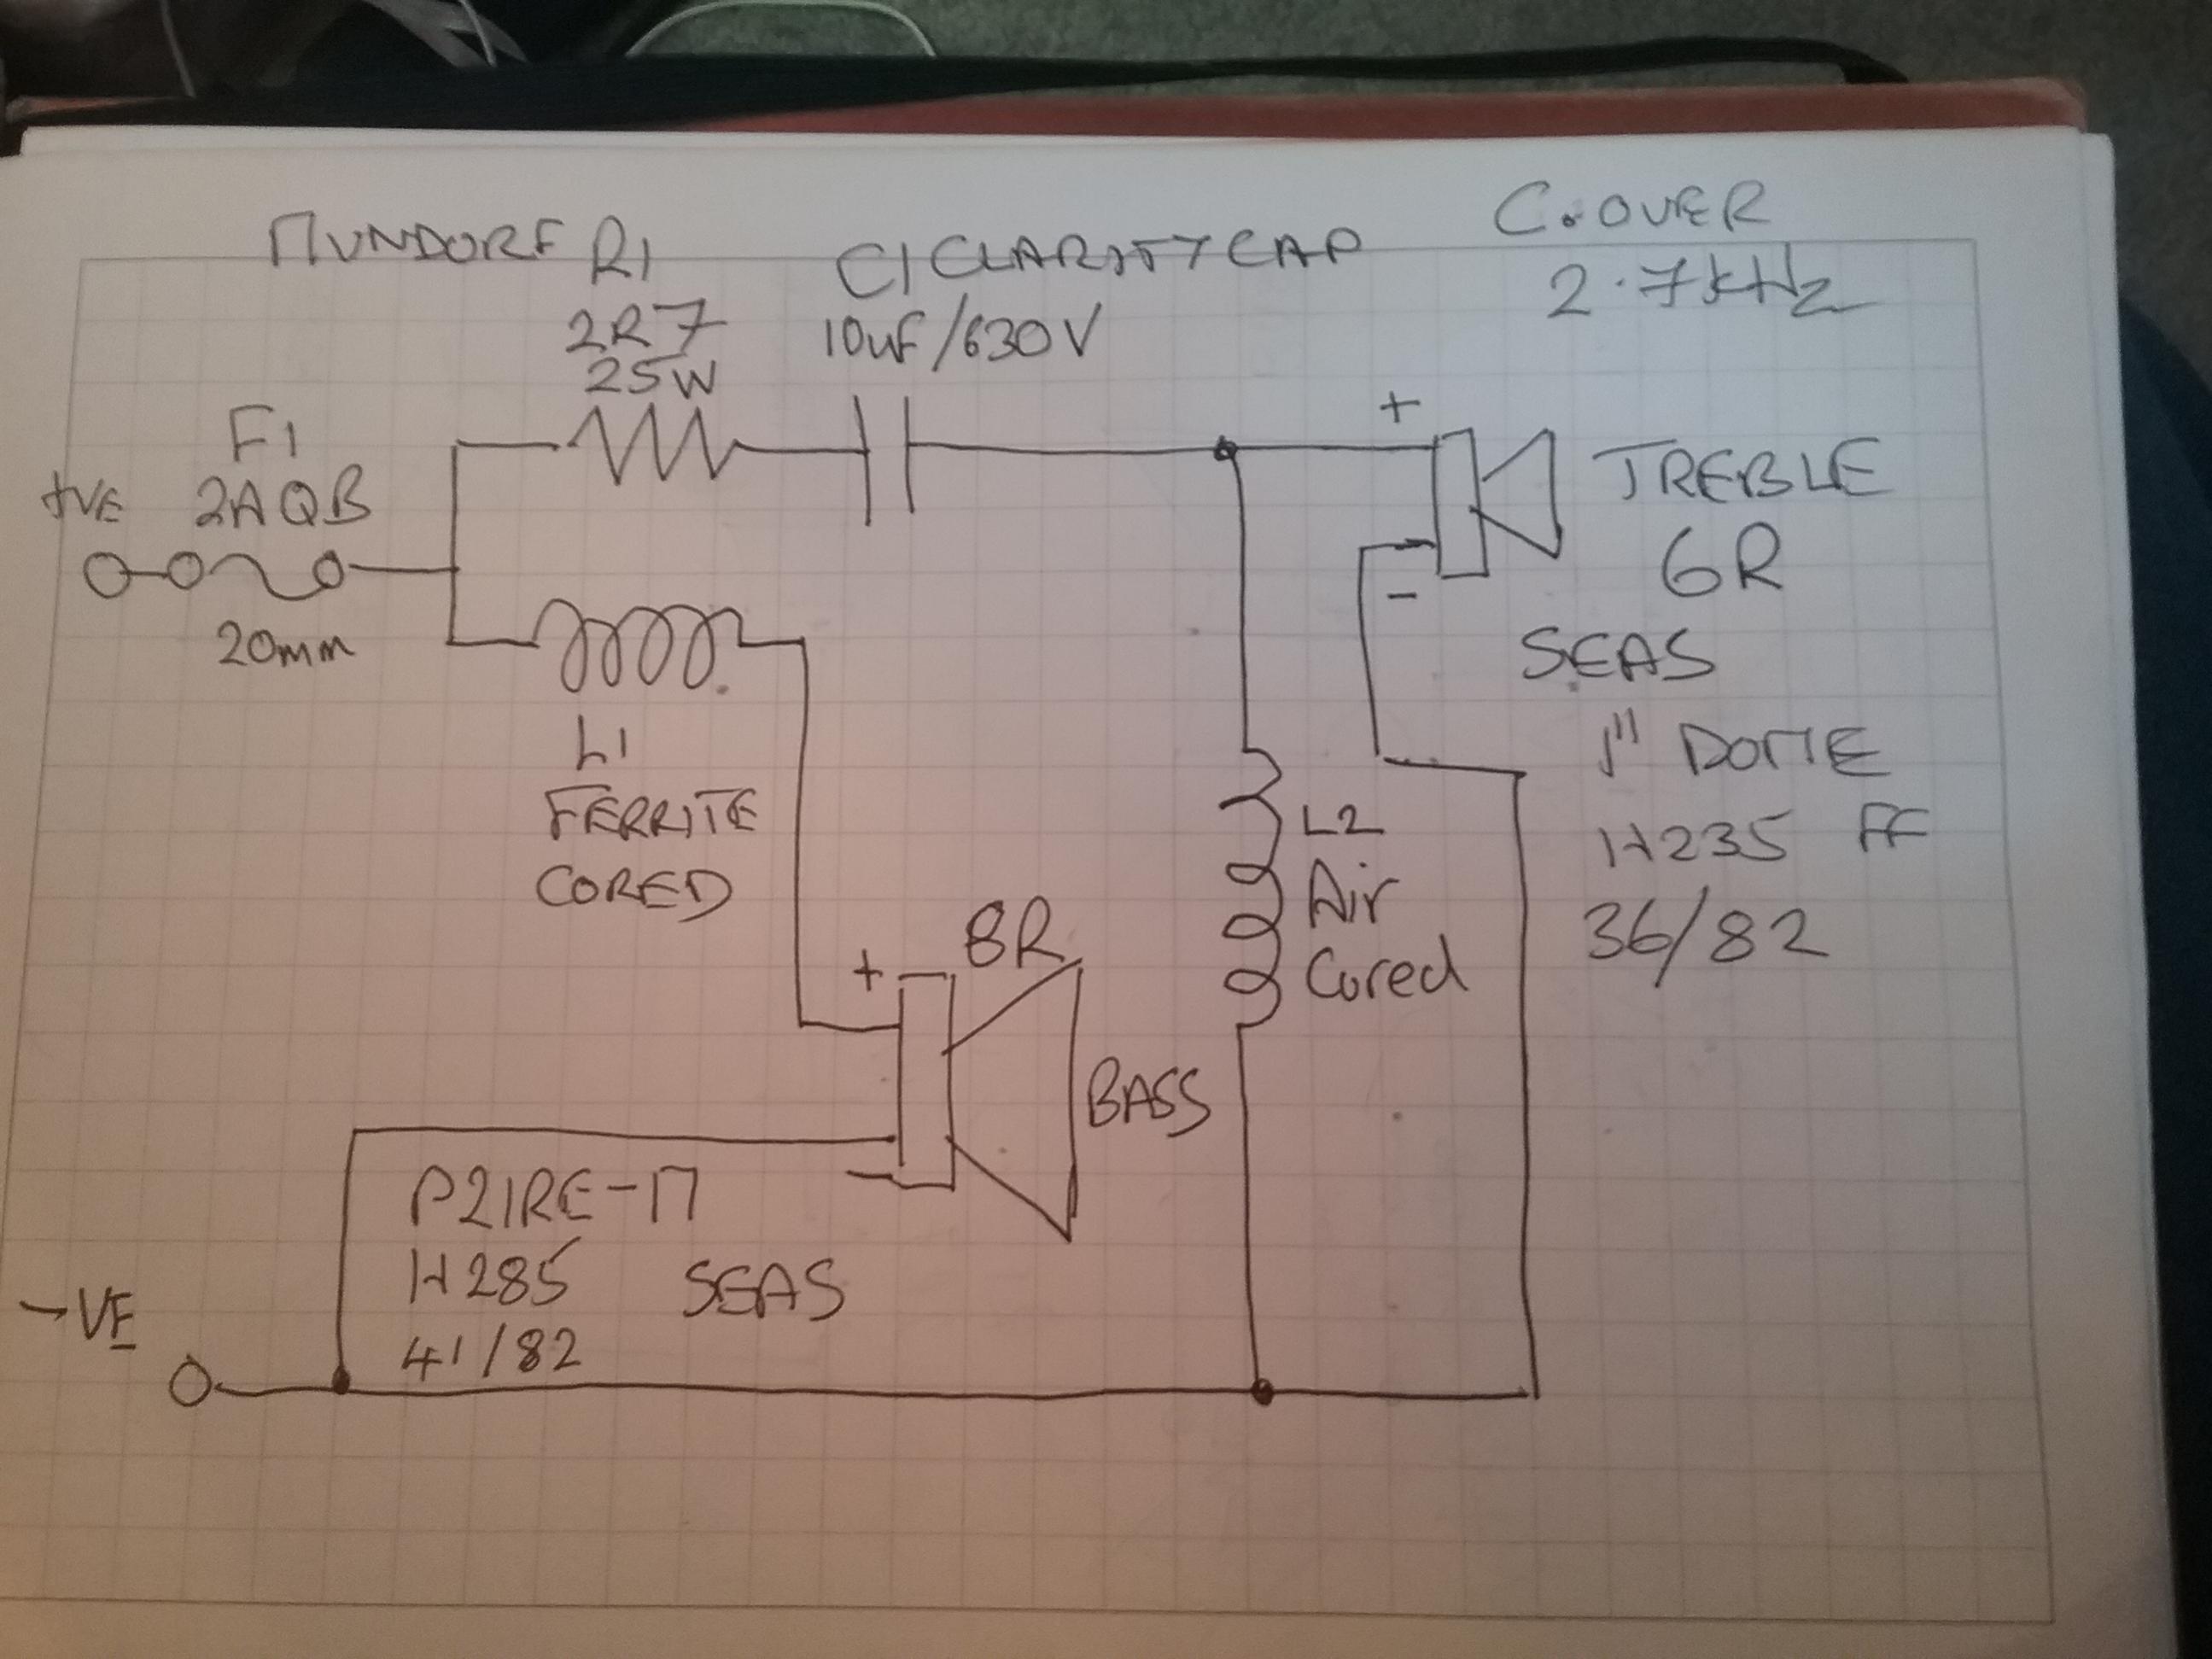 MUNDORF R1
2R7
25W
C1 CLARITYCAP
10uF/630V
C.OVER
2.7kHz
F1
+VE 2A QB
20mm
+
-
TREBLE
6R
SEAS
1" DOME
H235 FF
36/82
L1
FERRITE
CORED
L2
Air
Cored
+
8R
BASS
P21RE-17
H285 SEAS
41/82
-VE